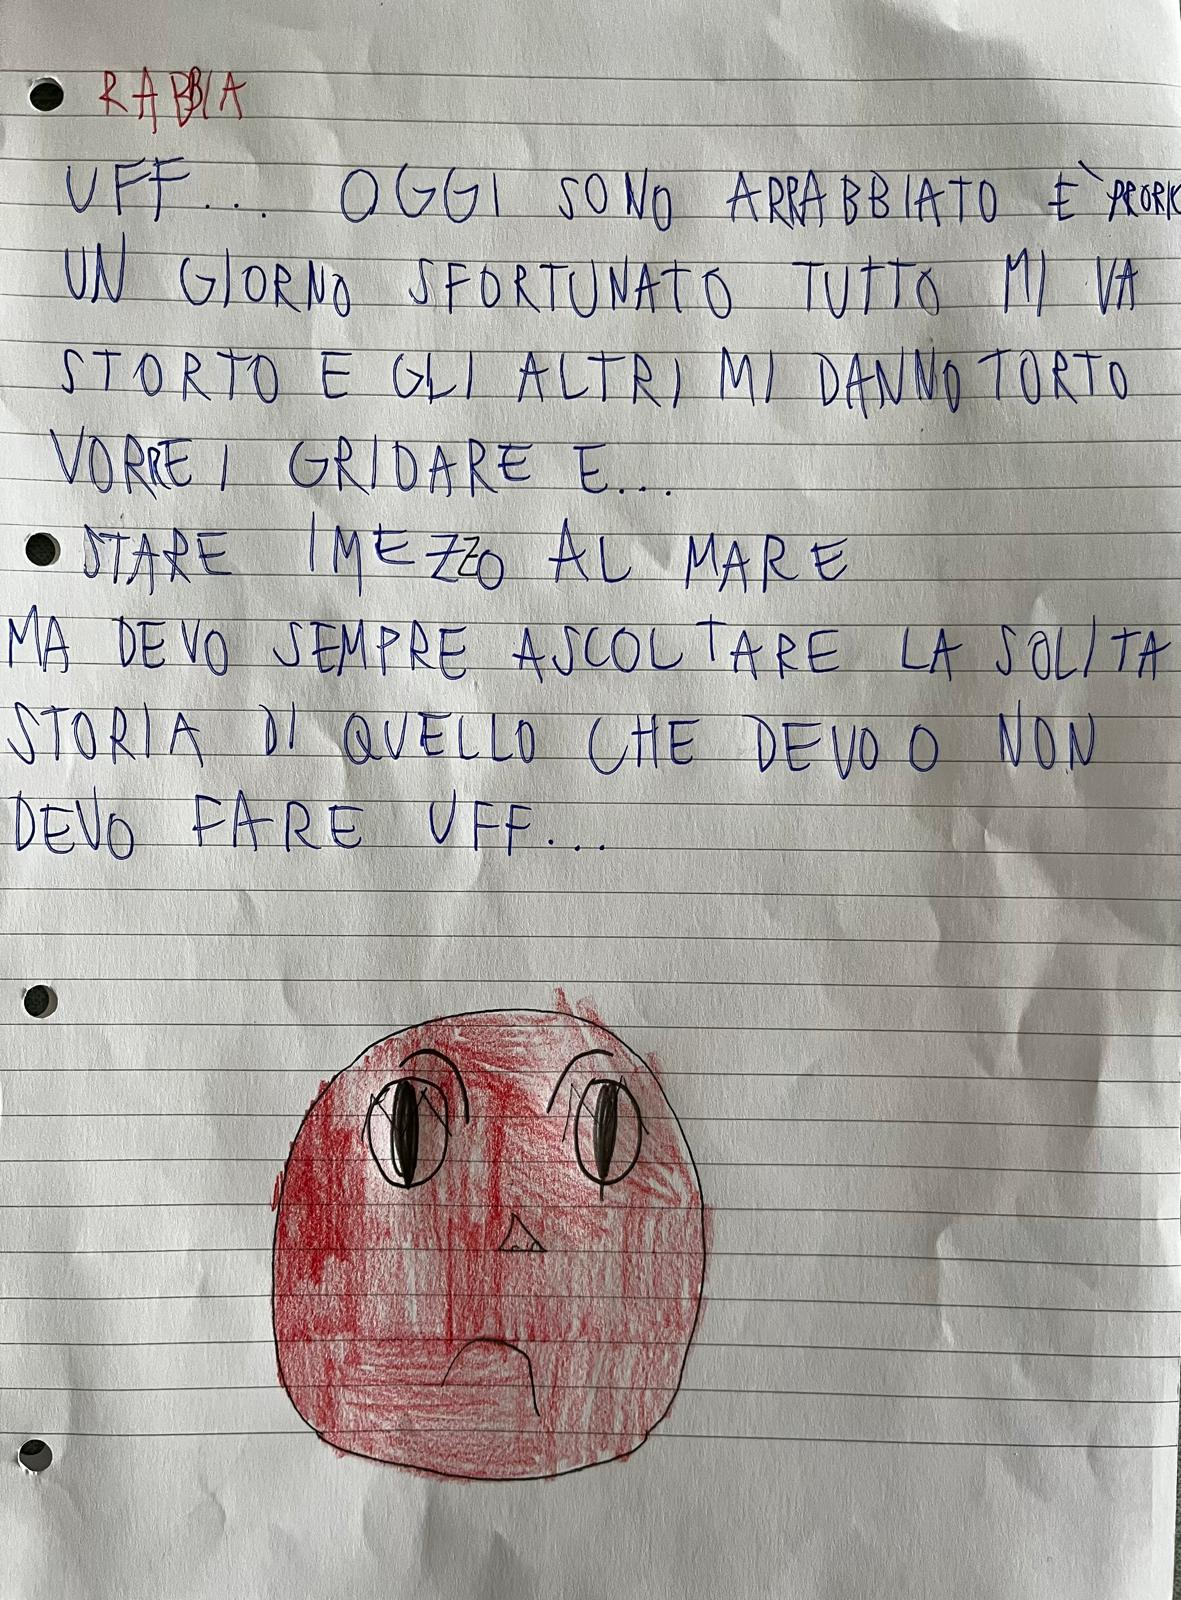 RABBIA
UFF... OGGI SONO ARRABBIATO E` PRORIO
UN GIORNO SFORTUNATO TUTTO MI VA
STORTO E GLI ALTRI MI DANNO TORTO
VORREI GRIDARE E...
STARE IMEZZO AL MARE
MA DEVO SEMPRE ASCOLTARE LA SOLITA
STORIA DI QUELLO CHE DEVO O NON
DEVO FARE UFF...